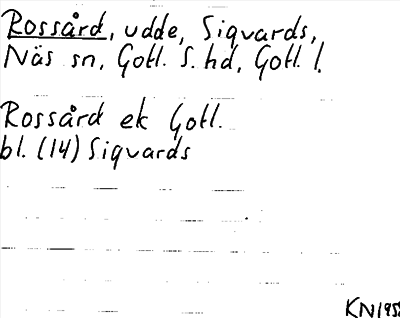 Rossård, udde, Sigvards,
Näs sn, Gotl. S. hd, Gotl. l.
Rossård ek Gotl.
bl. (14) Sigvards
KN 1958